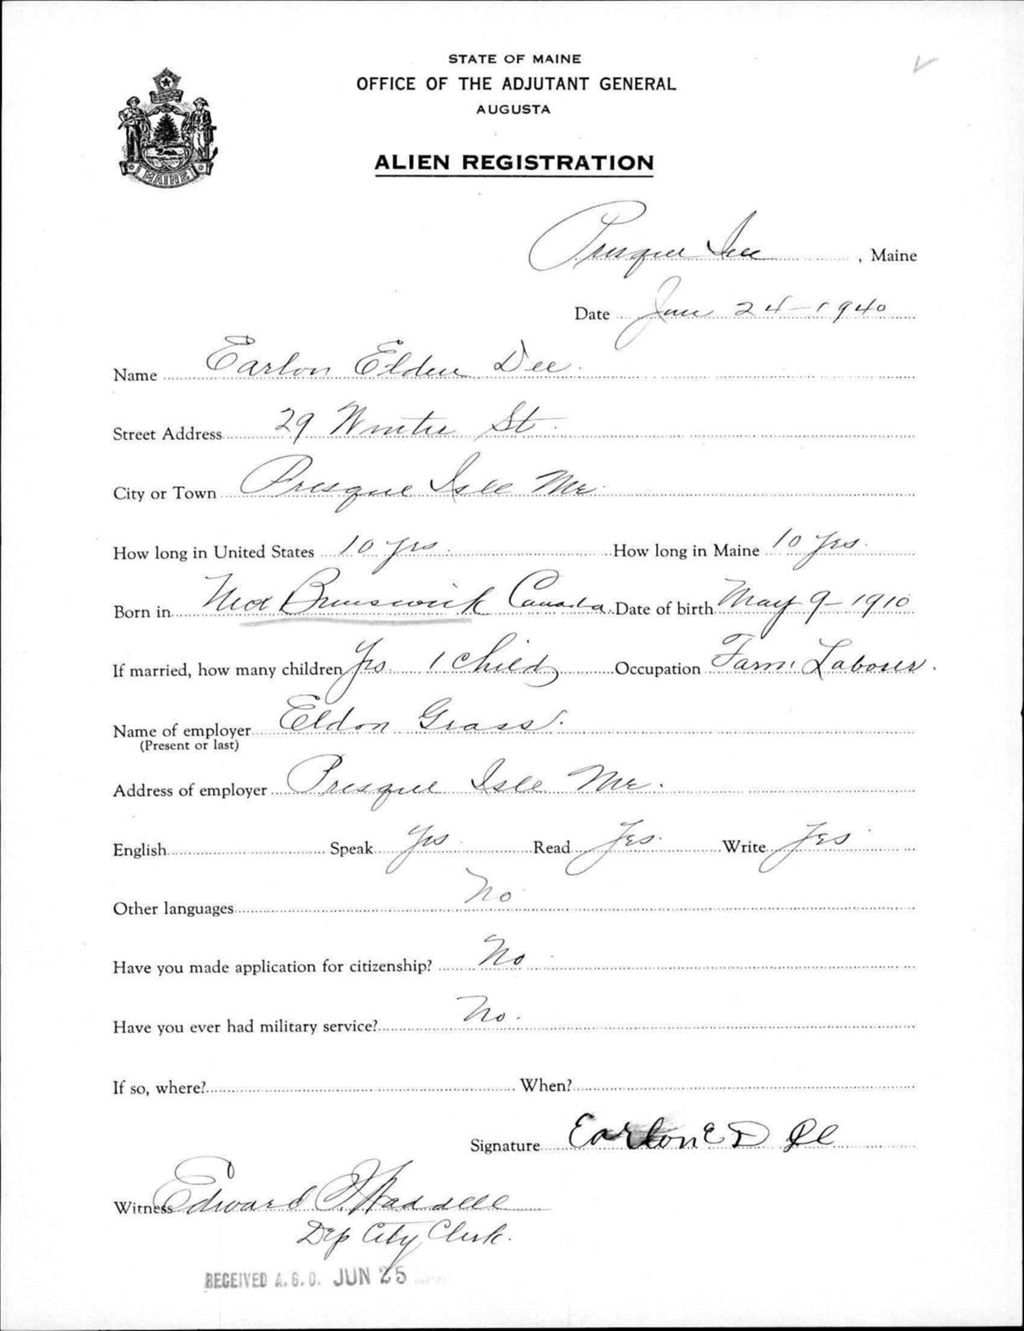 STATE OF MAINE
OFFICE OF THE ADJUTANT GENERAL
AUGUSTA
ALIEN REGISTRATION
MAINE
Presque Isle, Maine
Date June 24-1940
Name Earlon Elden Dee.
Street Address 29 Winter St.
City or Town Presque Isle Me.
How long in United States 10 yrs. How long in Maine 10 yrs.
Born in New Brunswick Canada Date of birth May 9-1910
If married, how many children Yes 1 Child Occupation Farm Laborer.
Name of employer Eldon Grass.
(Present or last)
Address of employer Presque Isle Me.
English Speak Yes Read Yes. Write Yes
Other languages No
Have you made application for citizenship? No
Have you ever had military service? No.
If so, where? When?
Signature Earlon E Dee
Witness Edward Waddell
Dep City Clerk.
RECEIVED A.G.O. JUN 25